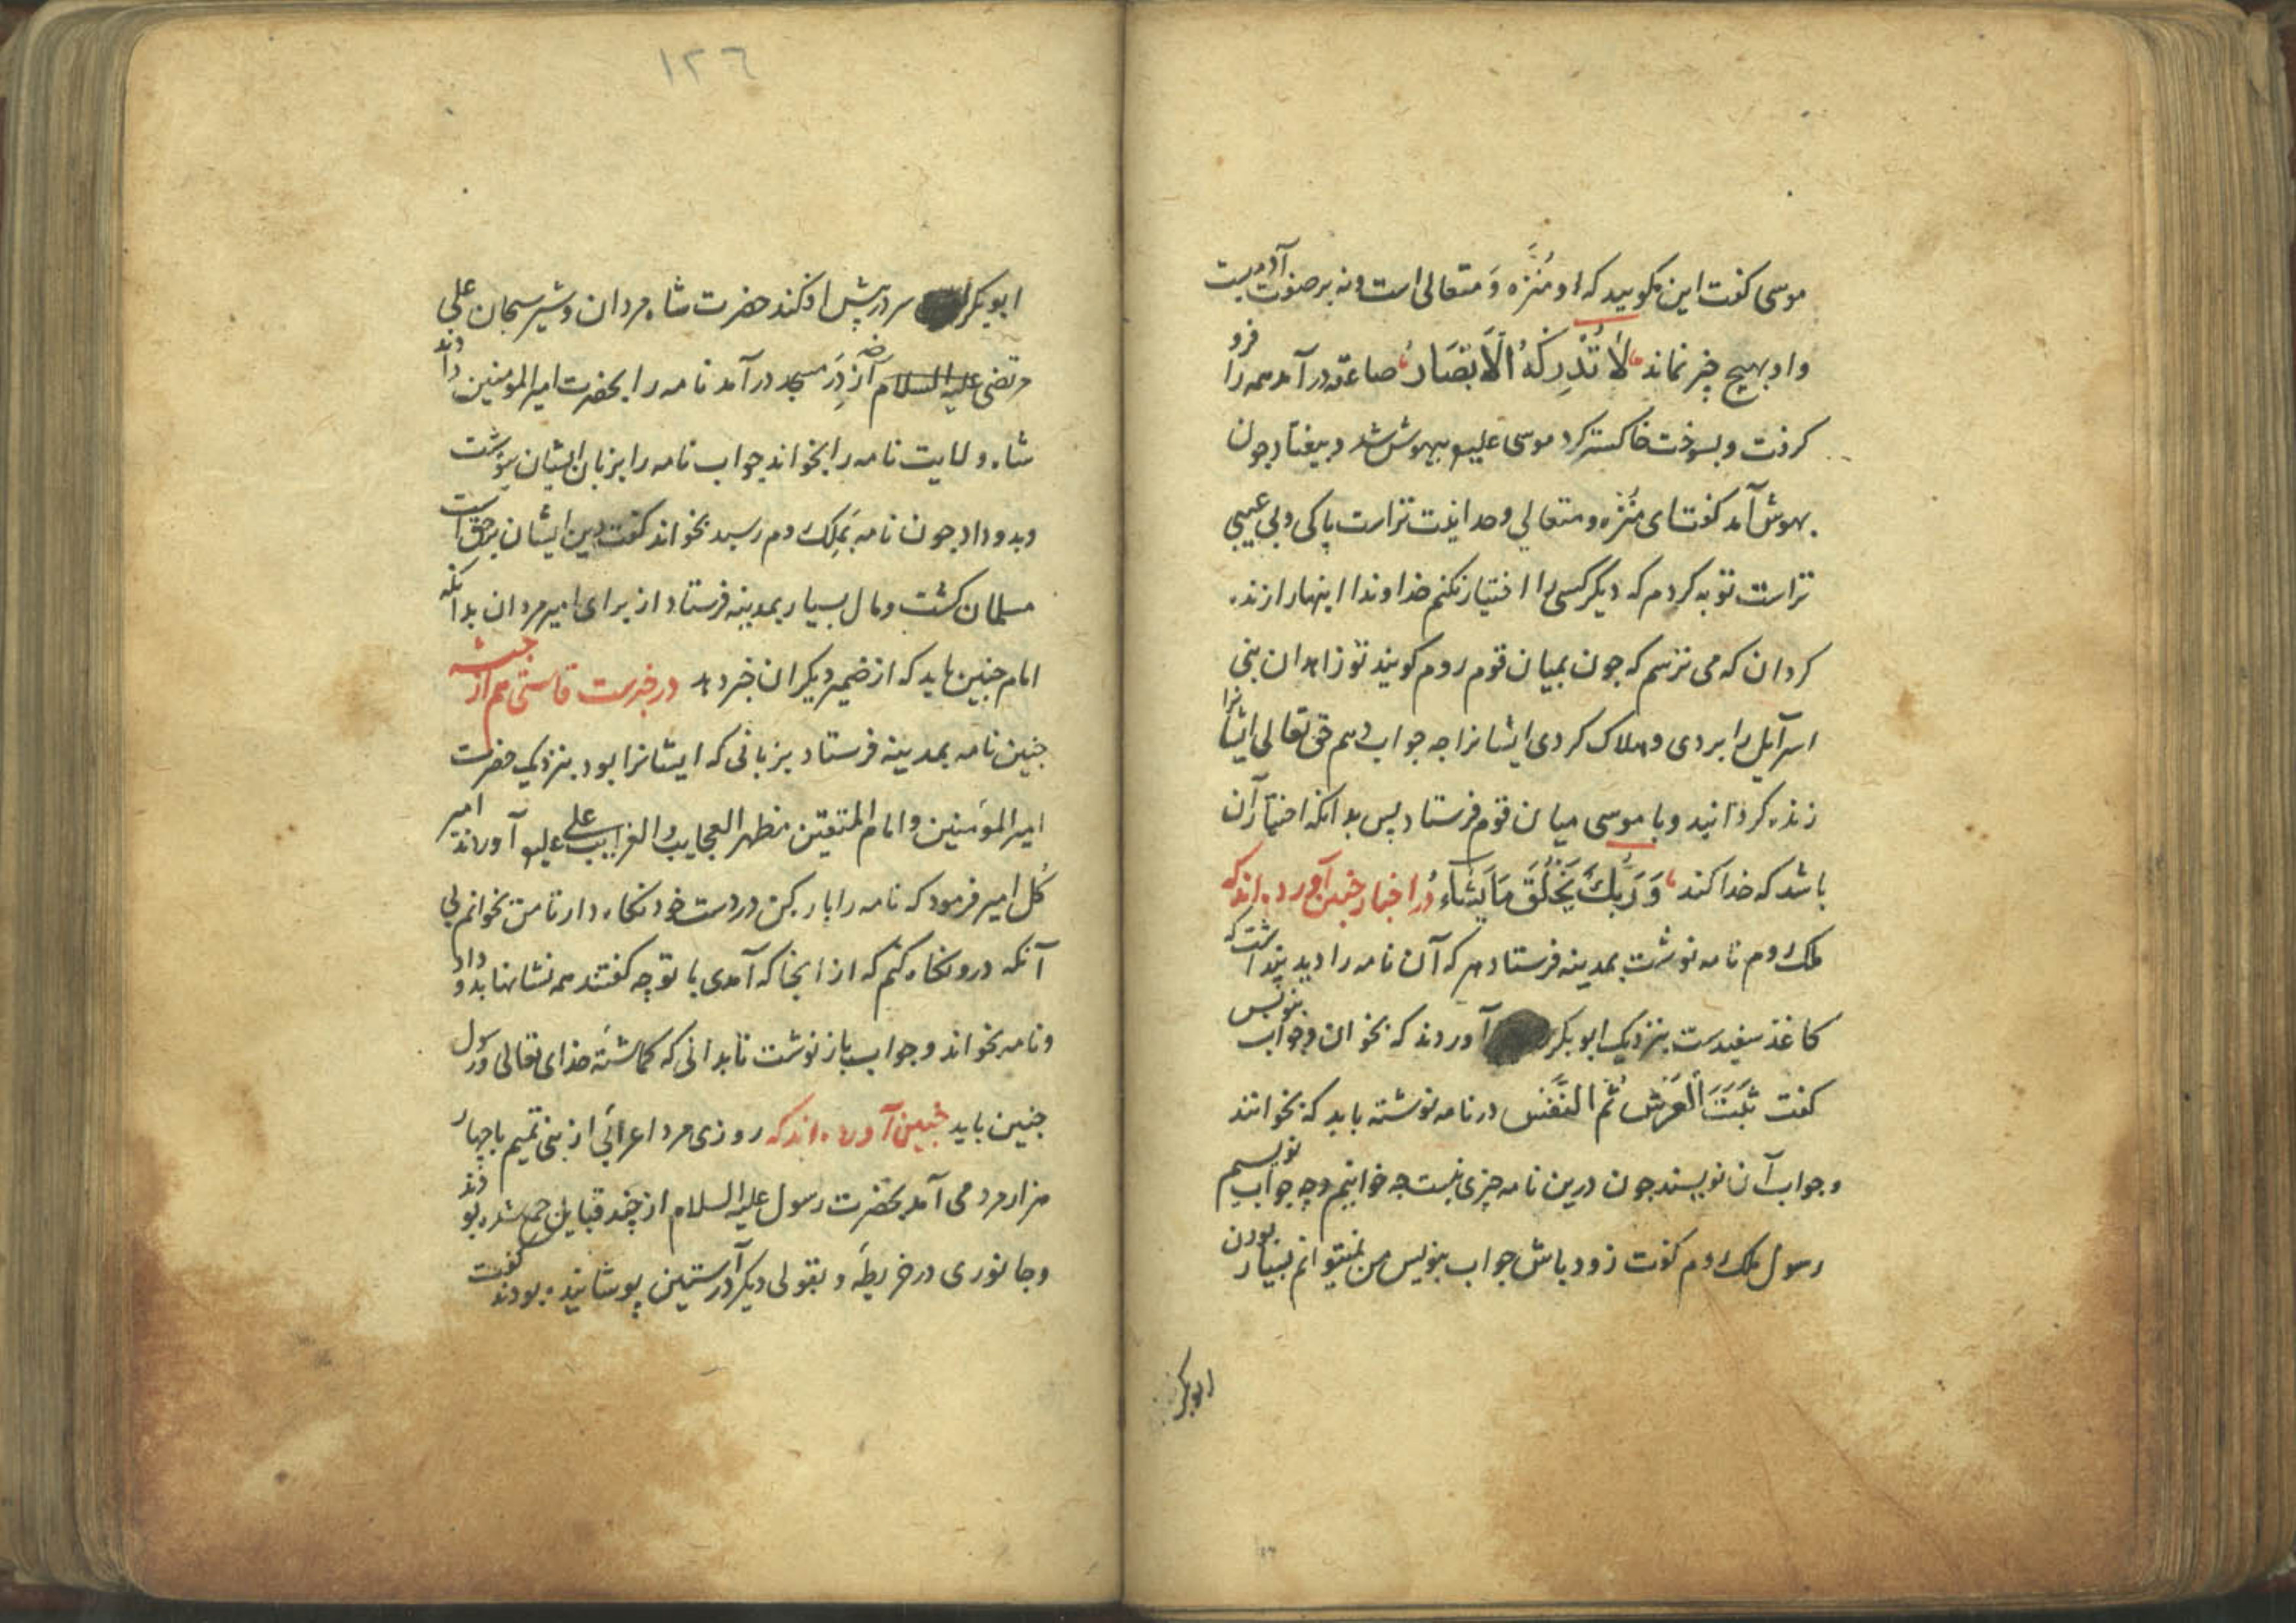 موسی کفت این مکویید که او مُنَزّه وَ متعالی است و نه بر صفوت آدمیست
و او بهیچ چیز نماند لَا تُدْرِكُهُ الْاَبْصَارُ صاعقه در آمد همه را فرو
کرفت و بسوخت خاکستر کرد موسی علیه بیهوش شد و بیفتاد چون
بهوش آمد کفت ای مُنَزه و متعالی وحدانیت تراست پاکی و بی عیبی
تراست توبه کردم که دیگر کسی را اختیار نکنم خداوندا اینهارا زنده
کردان که می ترسم که چون بمیان قوم روم کویند تو زاهدان بنی
اسرآیل را بردی و هلاک کردی ایشانرا چه جواب دهم حق تعالی ایشانرا
زنده کردانید و با موسی میان قوم فرستاد پس بدانکه اختیار آن
باشد که خدا کند وَ رَبُّكَ يَخْلُقُ مَا يَشَاءُ در اخبار چنین آورده اند که
ملک روم نامه نوشت بمدینه فرستاد هر که آن نامه را دید پنداشت که
کاغذ سفیدست بنزدیک ابوبکر آوردند که بخوان و جواب بنویس
کفت ثَبَتَ الْعَرْشُ ثُمَّ النَّقْش در نامه نوشته باید که بخوانند
و جواب آن نویسند چون درین نامه چیزی نیست چه خوانیم و چه جواب نویسیم
رسول ملک روم کفت زود باش جواب بنویس من نمیتوانم بسیار بودن
ابوبکر
١٢٦
ابوبکر سر در پیش افکند حضرت شاه مردان و شیر سبحان علی
مرتضی علیه السلام از دَرِ مسجد در آمد نامه را بحضرت امیر المومنین دادند
شاه ولایت نامه را بخواند جواب نامه را بزبان ایشان بنوشت
و بدو داد چون نامه بمَلِک روم رسید بخواند کفت دین ایشان برحق است
مسلمان کشت و مال بسیار بمدینه فرستاد از برای امیر مردان بدانکه
امام چنین باید که از ضمیر دیکران خبر دهد در خبرست قاستی هم از حبشه
چنین نامه بمدینه فرستاد بزبانی که ایشانرا بود بنزدیک حضرت
امیر المؤمنین و امام المتقین مظهر العجایب و الغرایب علی علیه آوردند امیر
کُل امیر فرمود که نامه را باز کن در دست خود نکاه دار تا من بخوانم بی
آنکه درو نکاه کنم که از انجا که آمدی با تو چه کفتند همه نشانها بدو داد
و نامه بخواند و جواب باز نوشت تا بدانی که کماشتهٔ خدای تعالی و رسول
چنین باید چنین آورده اند که روزی مرد اعرابی از بنی تمیم با چهار
هزار مرد می آمد بحضرت رسول علیه السلام از چند قبایل جمع شده بودند
و جانوری در خریطه و بقولی دیکر در آستین پوشانیده بودند کفت